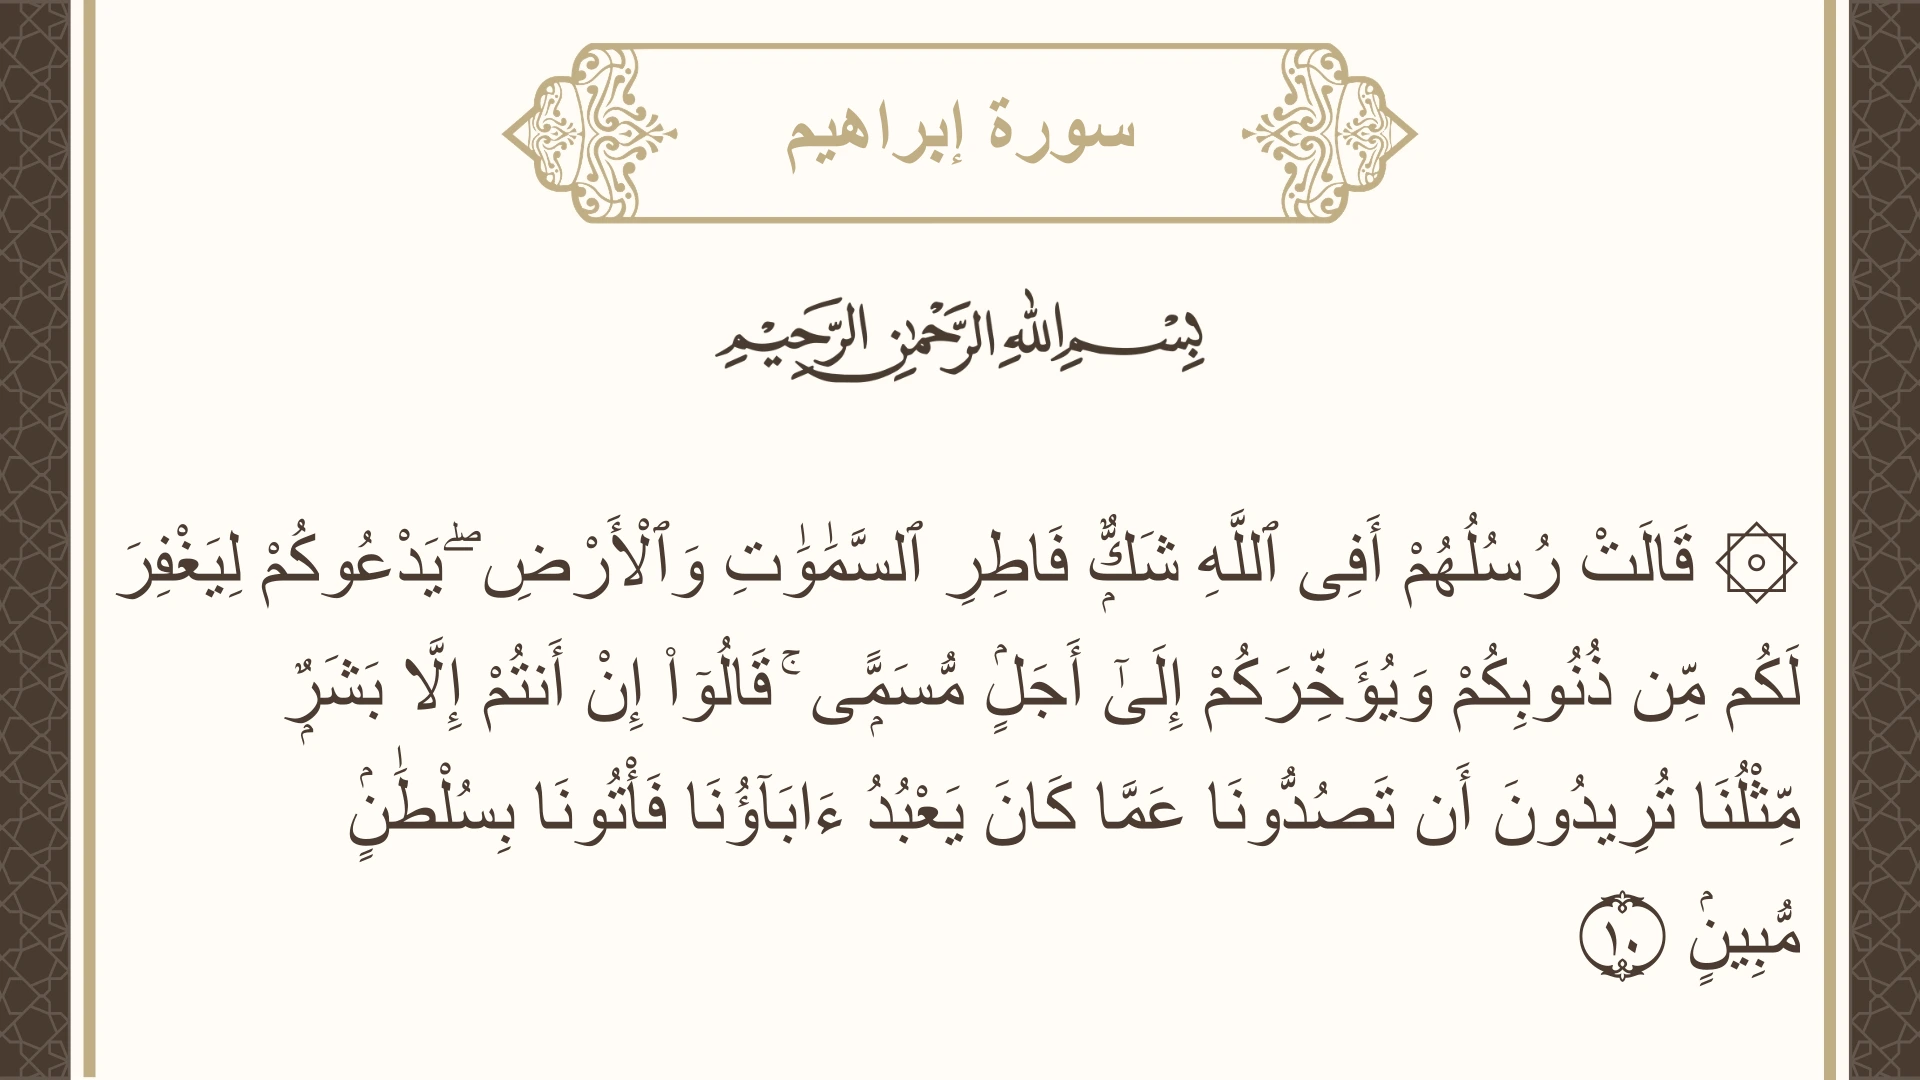 سورة إبراهيم
بِسْمِ اللهِ الرَّحْمٰنِ الرَّحِيْمِ
۞ قَالَتْ رُسُلُهُمْ أَفِى ٱللَّهِ شَكٌّۭ فَاطِرِ ٱلسَّمَـٰوَٰتِ وَٱلْأَرْضِ ۖ يَدْعُوكُمْ لِيَغْفِرَ
لَكُم مِّن ذُنُوبِكُمْ وَيُؤَخِّرَكُمْ إِلَىٰٓ أَجَلٍۢ مُّسَمًّۭى ۚ قَالُوٓا۟ إِنْ أَنتُمْ إِلَّا بَشَرٌۭ
مِّثْلُنَا تُرِيدُونَ أَن تَصُدُّونَا عَمَّا كَانَ يَعْبُدُ ءَابَآؤُنَا فَأْتُونَا بِسُلْطَـٰنٍۢ
مُّبِينٍۢ ١٠